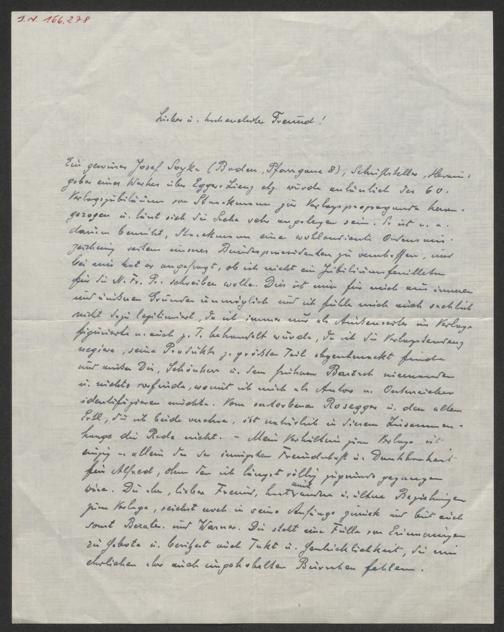 J.N. 166.278
Lieber u. hochverehrter Freund!
Ein gewisser Josef Soyka (Baden, Pfarrgasse 8), Schriftsteller, Heraus-
geber eines Werkes über Egger-Lienz etc. wurde anlässlich des 60.
Verlagsjubiläums von Staackmann zur Verlagspropaganda heran-
gezogen u. lässt sich die Sache sehr angelegen sein. Er ist u. a.
darum bemüht, Staackmann eine wohlverdiente Ordensaus-
zeichnung seitens unseres Bundespräsidenten zu verschaffen, und
bei mir hat er angefragt, ob ich nicht ein Jubiläumsfeuilleton
für die N. Fr. Pr. schreiben wolle. Dies ist mir für mich aus inneren
und äußeren Gründen unmöglich und ich fühle mich auch sachlich
nicht dazu legitimiert, da ich immer nur als Außenseiter im Verlage
figurierte u. auch z. T. behandelt wurde, da ich die Verlagssendung
negiere, seine Produkte z. größten Teil abgeschmackt finde
und außer Dir, Schönherr u. dem früheren Bartsch niemanden
u. nichts vorfinde, womit ich mich als Autor u. Oesterreicher
identifizieren möchte. Vom verstorbenen Rosegger u. dem alten
, die ich beide verehre, ist natürlich in diesem Zusammen-
hange die Rede nicht. – Mein Verhältnis zum Verlage ist
einzig u. allein das der innigsten Freundschaft u. Dankbarkeit
für Alfred, ohne den ich längst völlig zugrunde gegangen
wäre. Du aber, lieber Freund, hast auch andere u. ältere Beziehungen
zum Verlage, reichst noch in seine Anfänge zurück und bist auch
sonst Berater und Warner. Dir steht eine Fülle von Erinnerungen
zu Gebote u. besitzt auch Takt u. Geschicklichkeit, die mir
ehrlichen aber auch ungehobelten Burschen fehlen.